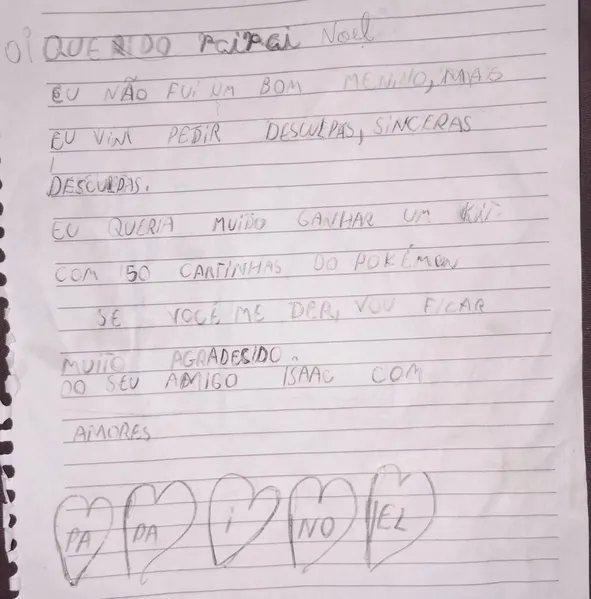 oi QUERIDO PAiPAi Noel
EU NÃO FUi UM BOM MENINO, MAS
EU VIM PEDIR DESCULPAS, SINCERAS
DESCULPAS.
EU QUERIA MUiTO GANHAR UM KIT
COM 50 CARTINHAS DO POKÉMON
SE VOCÊ ME DER, VOU FICAR
MUITO AGRADESIDO.
DO SEU AMIGO ISAAC COM
AMORES
PA PA i NO EL